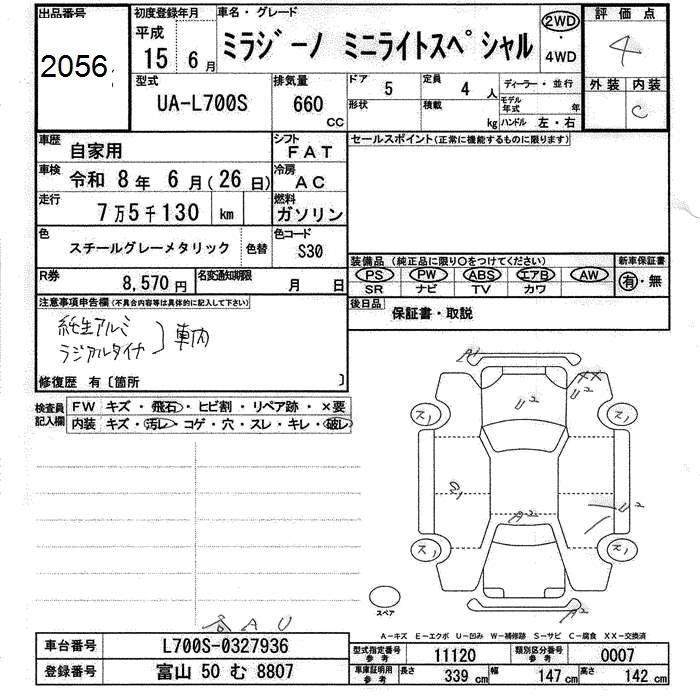 出品番号 初度登録年月 車名・グレード 評価点
2056 平成 15 6月 ミラジーノ ミニライトスペシャル 2WD・4WD 4
型式 排気量 ドア 5 定員 4人 ディーラー・並行 外装 内装
UA-L700S 660 CC 形状 積載 kg モデル年式 年 C
ハンドル 左・右
車歴 自家用 シフト FAT セールスポイント(正常に機能するものに限ります)
車検 令和 8年 6月(26日) 冷房 AC
走行 7万5千130 km 燃料 ガソリン
色 スチールグレーメタリック 色替 色コード S30
装備品 (純正品に限り〇をつけてください) 新車保証書
PS PW ABS エアB AW 有・無
SR ナビ TV カワ
R券 8,570円 名変通知期限 月 日
後日品 保証書・取説
注意事項申告欄(不具合内容等は具体的に記入して下さい)
純生アルミ
ラジアルタイヤ 車内
修復歴 有〔箇所 〕
検査員記入欄 FW キズ・飛石・ヒビ割・リペア跡・×要
内装 キズ・汚レ・コゲ・穴・スレ・キレ・破レ
A1
XX
U2 U2
ス1 ス1
U2
A2
ス1 ス1
スペア
A2
A U
A-キズ E-エクボ U-凹み W-補修跡 S-サビ C-腐食 XX-交換済
車台番号 L700S-0327936 型式指定番号 参考 11120 類別区分番号 参考 0007
登録番号 富山 50 む 8807 車庫証明用 参考 長さ 339 cm 幅 147 cm 高さ 142 cm